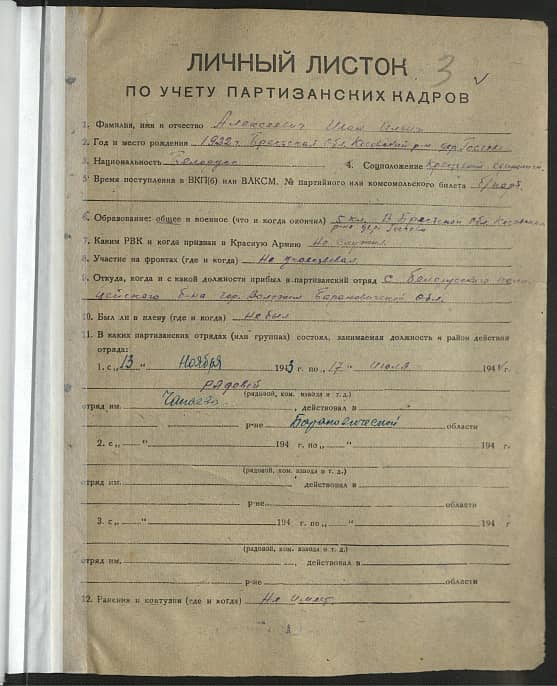 ЛИЧНЫЙ ЛИСТОК 3
ПО УЧЕТУ ПАРТИЗАНСКИХ КАДРОВ
1. Фамилия, имя и отчество Алексеевич Иван Ильич
2. Год и место рождения 1922 г. Брестская Обл. Косовский р-н дер.
3. Национальность Белорус 4. Соцположение
5. Время поступления в ВКП(б) или ВЛКСМ, № партийного или комсомольского билета б/парт.
6. Образование: общее и военное (что и когда окончил) 5 кл. В Брестской Обл. Косовский
р-на дер.
7. Каким РВК и когда призван в Красную Армию Не служил.
8. Участие на фронтах (где и когда) Не участвовал.
9. Откуда, когда и с какой должности прибыл в партизанский отряд с Белорусского поли-
цейского б-на гор. Барановической Обл.
10. Был ли в плену (где и когда) не был
11. В каких партизанских отрядах (или группах) состоял, занимаемая должность и район действия
отряда:
1. с „13" Ноября 1943 г. по „17" Июля 1944 г.
рядовой
(рядовой, ком. взвода и т. д.)
отряд им. Чапаева, действовал в
р-не Барановической области
2. с „ " 194 г. по „ " 194 г.
(рядовой, ком. взвода и т. д.)
отряд им. , действовал в
р-не области
3. с „ " 194 г. по „ " 194 г
(рядовой, ком. взвода и т. д.)
отряд им. , действовал в
р-не области
12. Ранения и контузии (где и когда) Не имеет.